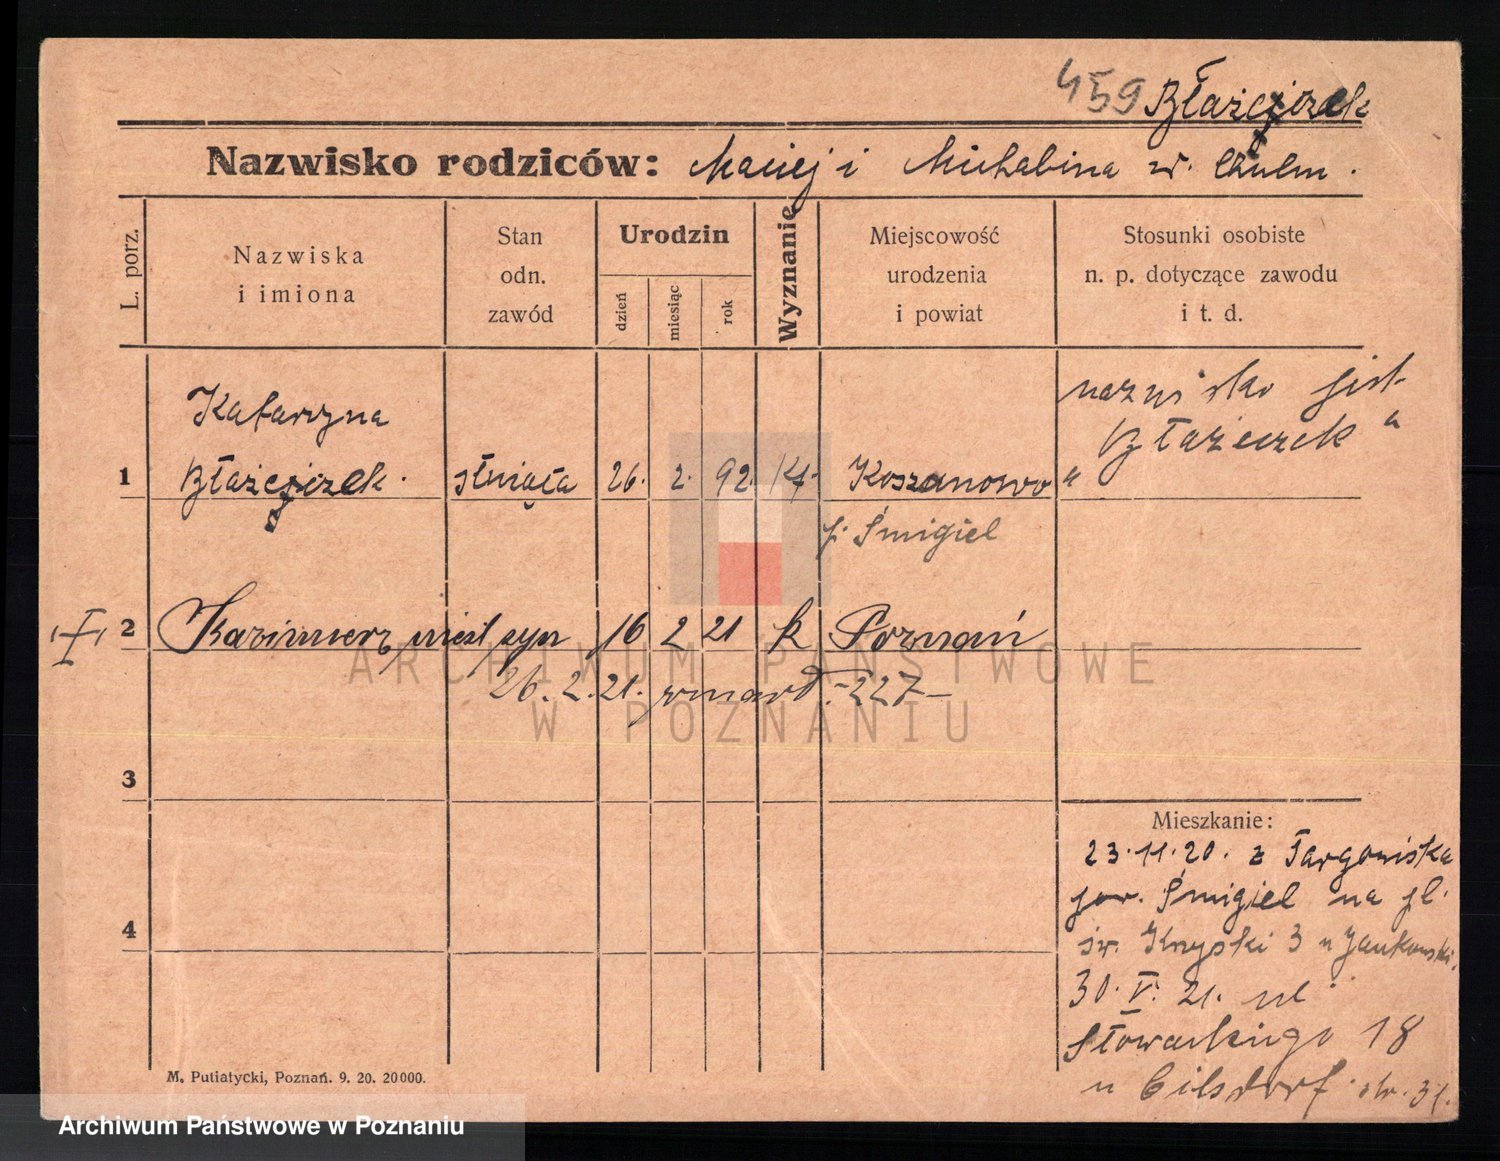 459 Błażejczek
Nazwisko rodziców: Maciej i Michalina w. Chulm.
L. porz.
Nazwiska
i imiona
Stan
odn.
zawód
Urodzin
dzień
miesiąc
rok
Wyznanie
Miejscowość
urodzenia
i powiat
Stosunki osobiste
n. p. dotyczące zawodu
i t. d.
Katarzyna
1 Błażejczek. służąca 26. 2. 92. Kt. Koszanowo
p. Śmigiel
nazwisko jest
"Błażeczek"
2 Kazimierz nieśl syn 16 2 21 k Poznań
26. 2. 21. zmarł -227-
3
4
Mieszkanie:
23.11.20. z Targowiska
pow. Śmigiel na pl.
św. Krzyski 3 u Jankowski.
30. V. 21. ul
Słowackiego 18
u Gilsdorf. str. 31.
M. Putiatycki, Poznań. 9. 20. 20000.
ARCHIWUM PAŃSTWOWE
W POZNANIU
Archiwum Państwowe w Poznaniu